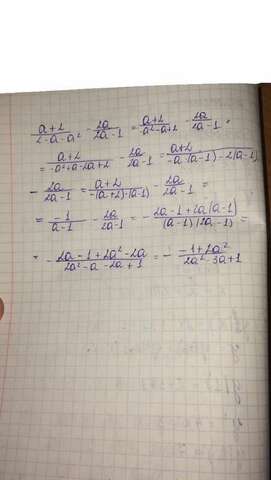 a+2/2-a-a² - 2a/2a-1 = a+2/-a²-a+2 - 2a/2a-1 =
= a+2/-a²+a-2a+2 - 2a/2a-1 = a+2/-a(a-1)-2(a-1)
- 2a/2a-1 = a+2/-(a+2)(a-1) - 2a/2a-1 =
= -1/a-1 - 2a/2a-1 = - 2a-1+2a(a-1)/(a-1)(2a-1) =
= - 2a-1+2a²-2a/2a²-a-2a+1 = - -1+2a²/2a²-3a+1